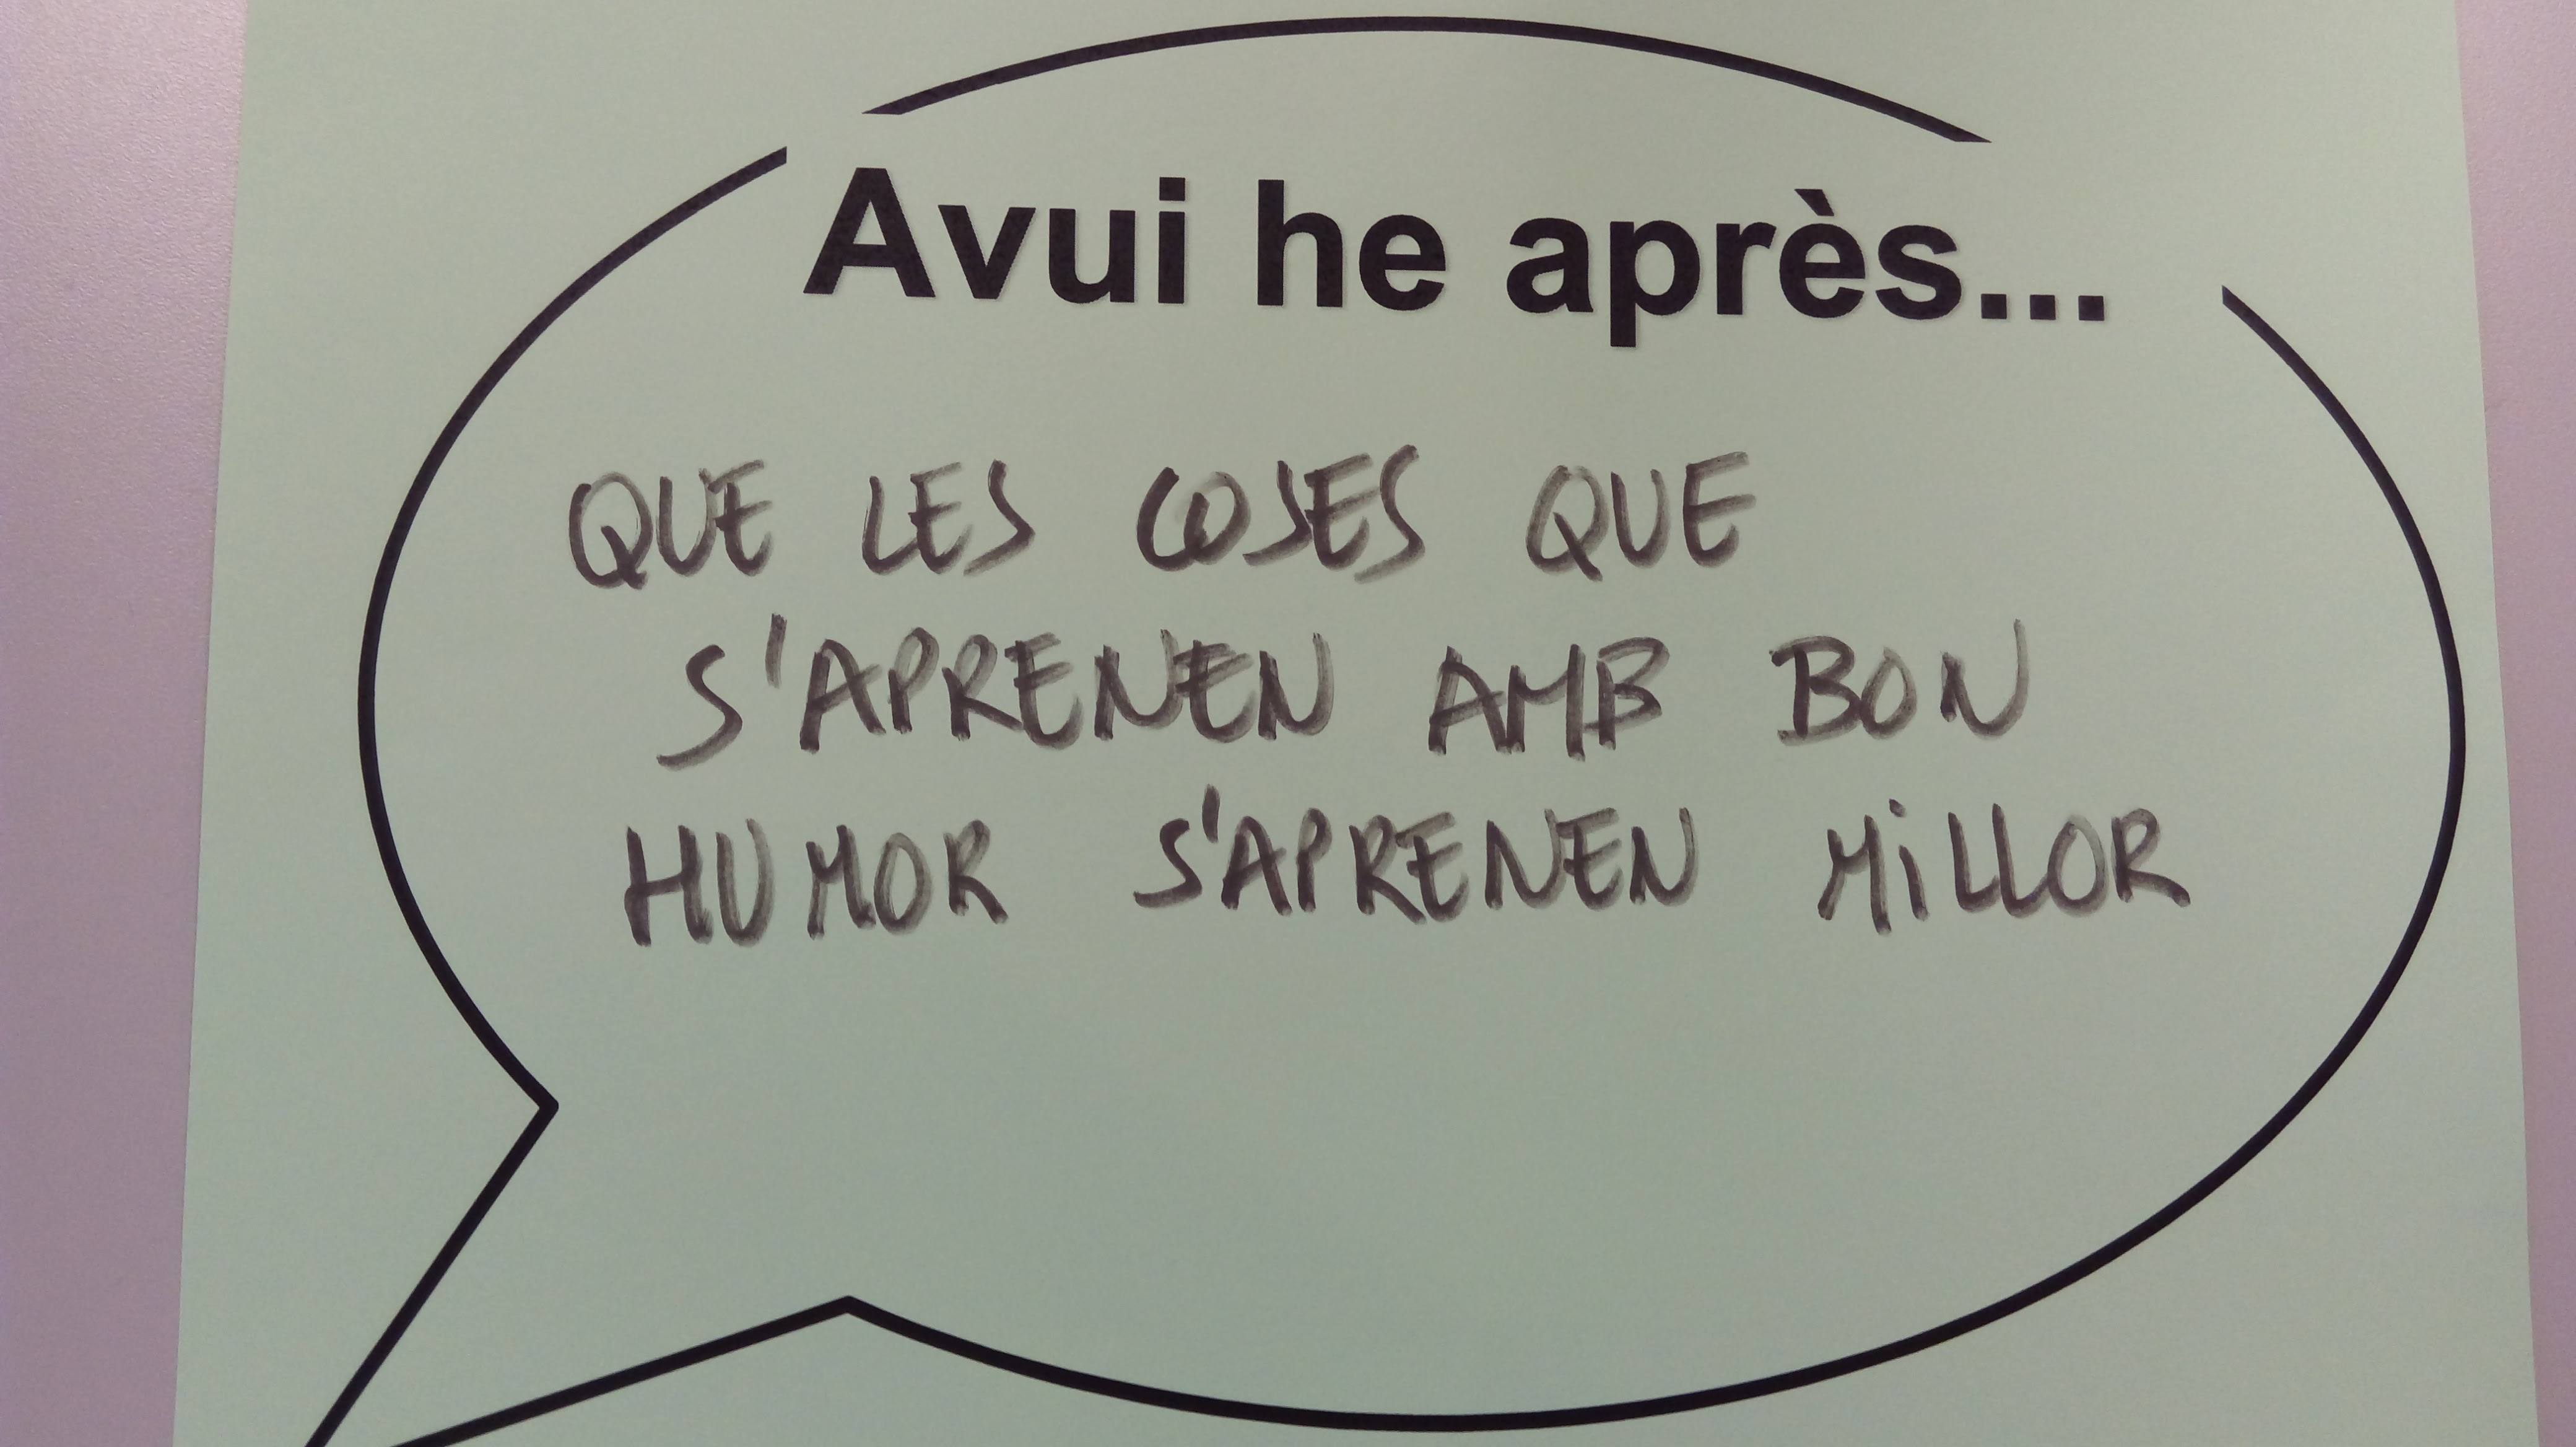 Avui he après...
QUE LES COSES QUE
S'APRENEN AMB BON
HUMOR S'APRENEN MiLLOR